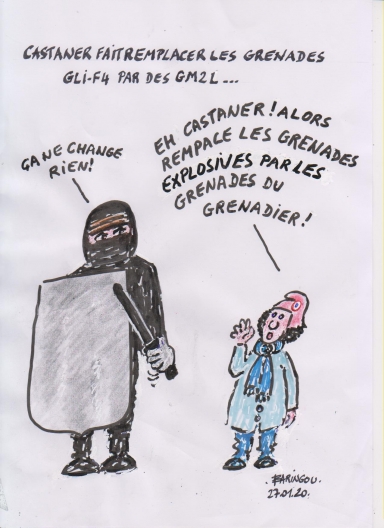 CASTANER FAIT REMPLACER LES GRENADES
GLI-F4 PAR DES GM2L...
ÇA NE CHANGE
RIEN!
EH CASTANER! ALORS
REMPACE LES GRENADES
EXPLOSIVES PAR LES
GRENADES DU
GRENADIER!
BARINGOU.
27.01.20.